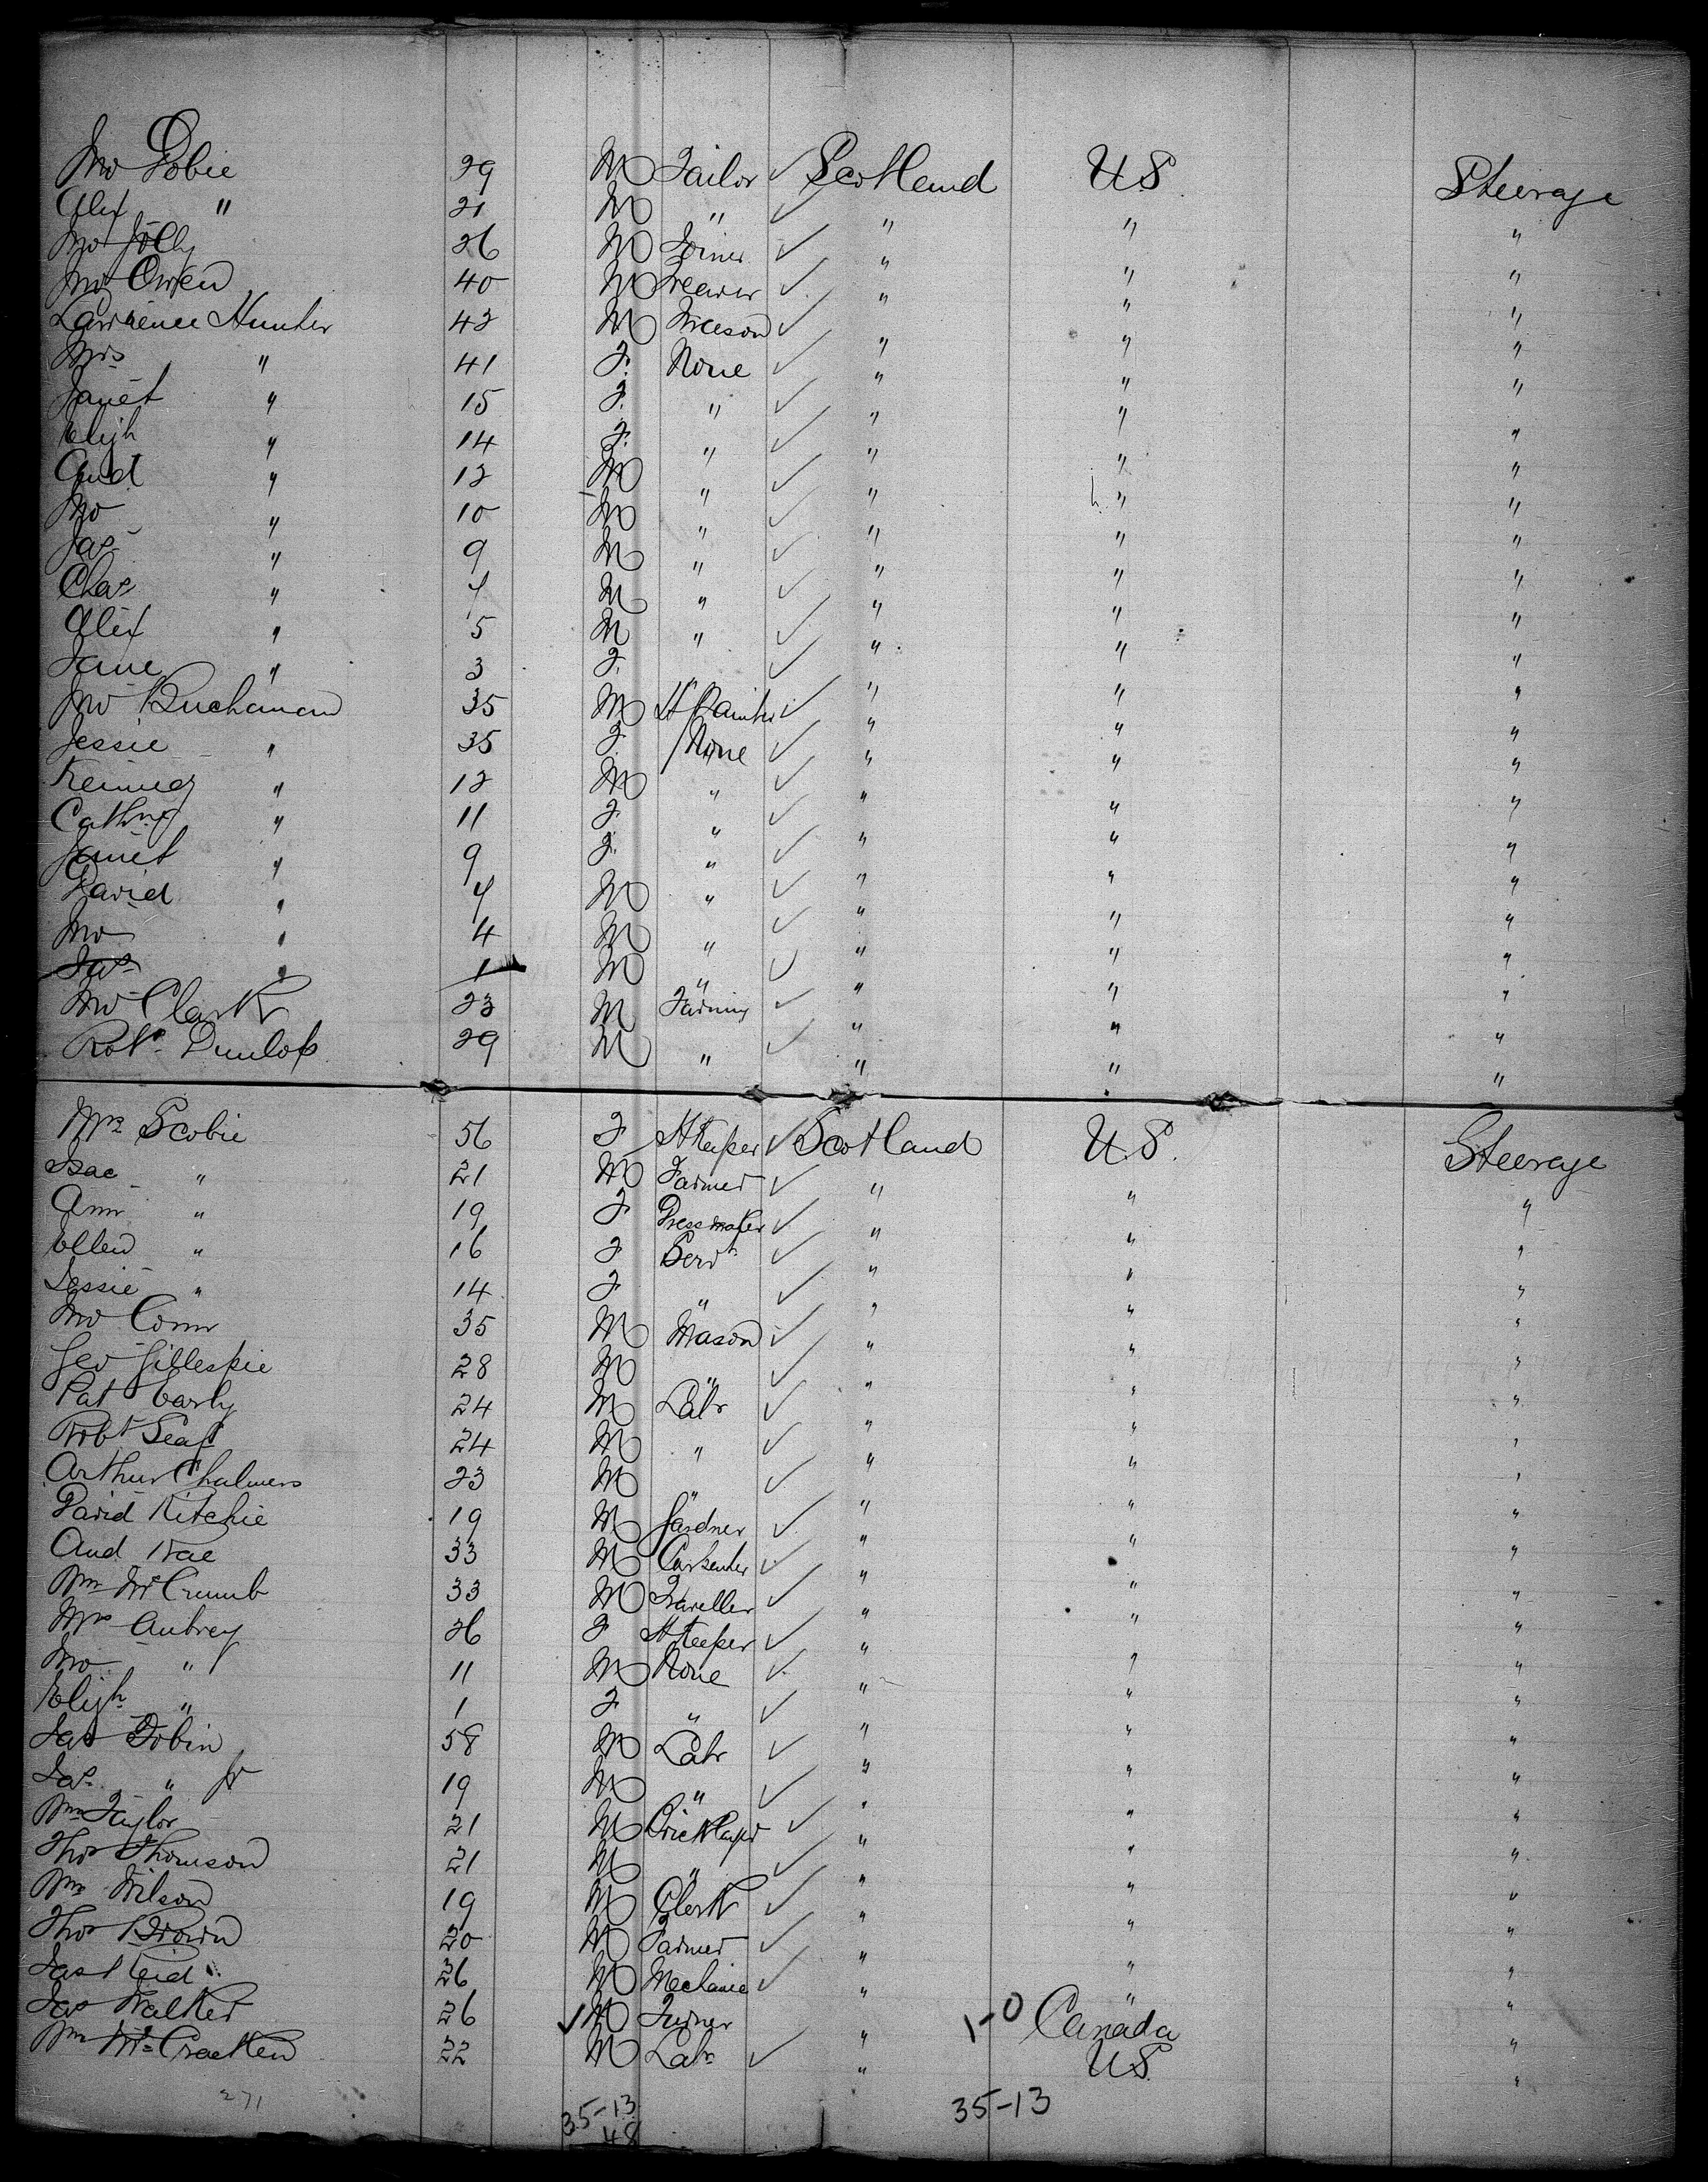 Jno Dobie 29 M Tailor ✓ Scotland U.S. Steerage
Alex " 21 M " ✓ " " "
Jno Jolly 26 M Joiner ✓ " " "
Jno Owen 40 M Weaver ✓ " " "
Lawrence Hunter 42 M ✓ " " "
Mrs " 41 F. None ✓ " " "
Janet " 15 F. " ✓ " " "
Elizh " 14 F. " ✓ " " "
And " 12 M " ✓ " " "
Jno " 10 M " ✓ " " "
Jas " 9 M " ✓ " " "
Chas " 7 M " ✓ " " "
Alex " 5 M " ✓ " " "
Jane " 3 F. ✓ " " "
Jno Buchanan 35 M H Painter ✓ " " "
Jessie " 35 F. None ✓ " " "
" 12 M " ✓ " " "
Cathne " 11 F. " ✓ " " "
Janet " 9 F. " ✓ " " "
David " 7 M " ✓ " " "
Jno " 4 M " ✓ " " "
Jas " 1 M " ✓ " " "
Jno Clark 23 M ✓ " " "
Robt Dunlop 29 M " ✓ " " "
Mrs Scobie 56 F HKeeper ✓ Scotland U.S. Steerage
Isac " 21 M Farmer ✓ " " "
Ann " 19 F Dressmaker ✓ " " "
Ellen " 16 F Servt ✓ " " "
Jessie " 14 F " ✓ " " "
Jno Conn 35 M Mason ✓ " " "
Geo Gillespie 28 M " ✓ " " "
Pat Early 24 M Labr ✓ " " "
Robt 24 M " ✓ " " "
Arthur Chalmers 23 M " ✓ " " "
David Ritchie 19 M Gardner ✓ " " "
And Rae 33 M Carpenter ✓ " " "
Wm McCrumb 33 M Traveller ✓ " " "
Mrs Aubrey 26 F HKeeper ✓ " " "
Jno " 11 M None ✓ " " "
Elizh " 1 F " ✓ " " "
Jas Tobin 58 M Labr ✓ " " "
Jas " Jr 19 M " ✓ " " "
Wm Taylor 21 M Bricklayer ✓ " " "
Thos Thomson 21 M " ✓ " " "
Wm Wilson 19 M Clerk ✓ " " "
Thos Brown 20 M Farmer ✓ " " "
Jas Reid 26 M Mechanic ✓ " " "
Jas Walker 26 ✓ M Turner " 1-0 Canada "
Wm McCracken 22 M Labr ✓ " U.S. "
271 35-13 35-13
48